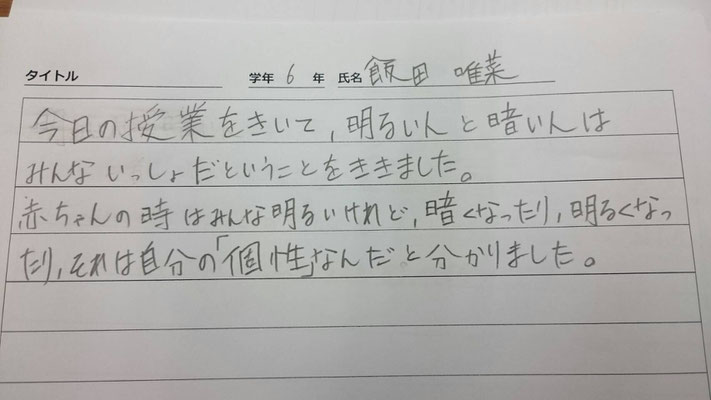 タイトル 学年 6 年 氏名 飯田 唯菜
今日の授業をきいて,明るいんと暗いんは
みんないっしょだということをききました。
赤ちゃんの時はみんな明るいけれど,暗くなったり,明るくなっ
たり,それは自分の「個性」なんだと分かりました。